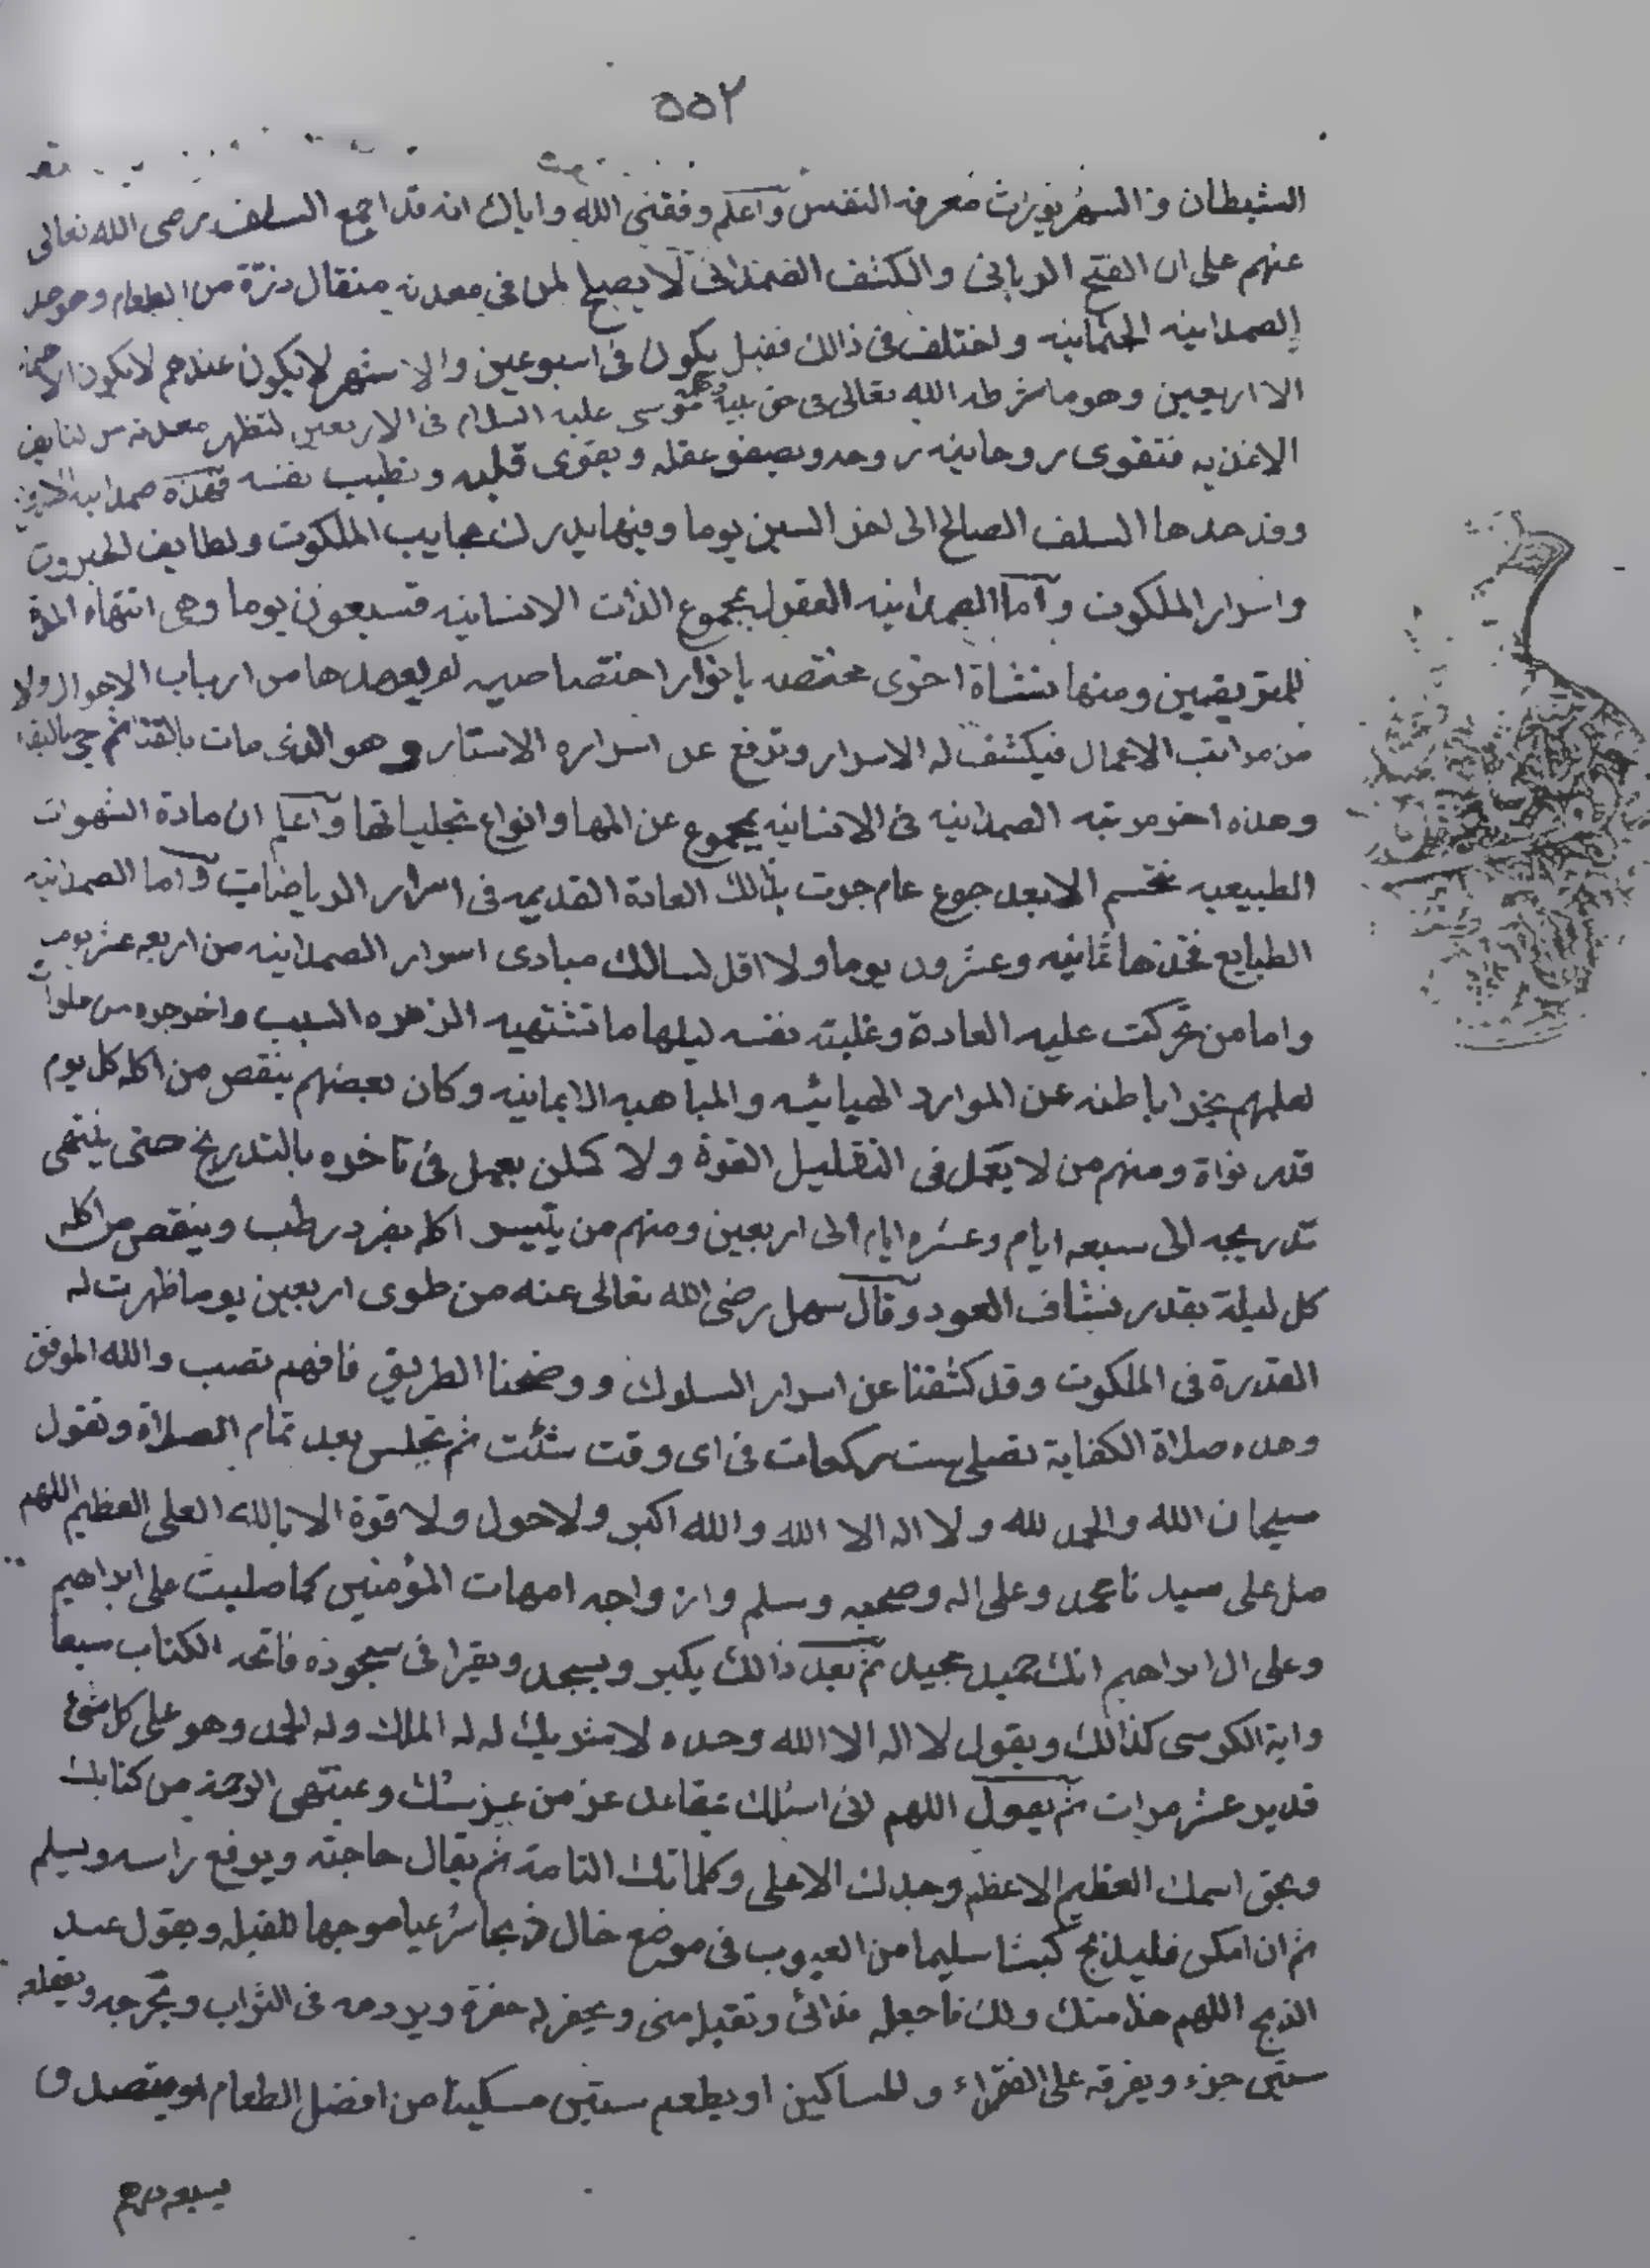 ٥٥٢
الشيطان والسهر يورث معرفة النفس واعلم وفقنى الله واياك انه قد اجمع السلف رضى الله تعالى
عنهم على ان الفتح الربانى والكشف الصمدانى لا يصح لمن فى معدته مثقال ذرة من الطعام وهو حد
الصمدانيه الجثمانيه واختلف فى ذالك فقيل يكون فى اسبوعين والاشهر لا يكون عندهم لا يكون
الا اربعين وهو ما شرطه الله تعالى فى حق موسى عليه السلام فى الاربعين لتظهر معدته من
الاغذيه فتقوى روحانيه روحه ويصفو عقله ويقوى قلبه وتطيب نفسه فهذه صمدانيه
وقد حدها السلف الصالح الى يوما وفيها يدرك عجايب الملكوت ولطايف الجبروت
واسرار الملكوت واما الصمدانيه العقول بمجموع الذات الانسانيه فسبعون يوما وهى انتهاء
ومنها نشاة اخرى مختصه بانوار اختصاصيه لم من ارباب الاحوال ولا
من مراتب الاعمال فيكشف له الاسرار وترفع عن اسراره الاستار وهو الذى مات ثم حى
وهذه اخر مرتبه الصمدانيه فى الانسانيه بمجموع وانواع تجلياتها واعلم ان مادة الشهوات
الطبيعيه الا بعد جوع عام جرت بذالك العادة القديمه فى اسرار الرياضات واما الصمدانيه
الطبايع فحدها ثمانيه وعشرون يوما ولا اقل لسالك مبادى اسرار الصمدانيه من اربعه عشر يوما
واما من تحركت عليه العادة وغلبته نفسه ما تشتهيه السبب
لعلمهم باطنه عن الموارد والايمانيه وكان بعضهم ينقص من اكله كل يوم
قدر نواة ومنهم من لا يعمل فى التقليل القوة ولا كلن يعمل فى تاخره بالتدريج حتى ينتهى
تدريجه الى سبعه ايام وعشره ايام الى اربعين ومنهم من اكله رطب وينقص من اكله
كل ليلة بقدر نشاف العود وقال سهل رضى الله تعالى عنه من طوى اربعين يوما ظهرت له
القدرة فى الملكوت وقد كشفنا عن اسرار السلوك ووضحنا الطريق فافهم تصب والله الموفق
وهذه صلاة الكفاية تصلى ست ركعات فى اى وقت شئت ثم تجلس بعد تمام الصلاة وتقول
سبحان الله والحمد لله ولا اله الا الله والله اكبر ولا حول ولا قوة الا بالله العلى العظيم اللهم
صل على سيدنا محمد وعلى اله وصحبه وسلم وازواجه امهات المؤمنين كما صليت على ابراهيم
وعلى ال ابراهيم انك حميد مجيد ثم بعد ذالك يكبر ويسجد ويقرا فى سجوده فاتحه الكتاب سبعا
واية الكرسى كذالك ويقول لا اله الا الله وحده لا شريك له له الملك وله الحمد وهو على كل شئ
قدير عشر مرات ثم يقول اللهم انى اسئلك بمقاعد عز من عرشك ومنتهى الرحمة من كتابك
وبحق اسمك العظيم الاعظم وجدك الاعلى وكلماتك التامة ثم حاجته ويرفع راسه ويسلم
ثم ان امكن فليذبح كبشا سليما من العيوب فى موضع خال ذبحا شرعيا موجها للقبله ويقول عند
الذبح اللهم هذا منك ولك فاجعله فدائى وتقبله منى ويحفر له حفرة ويردمه فى التراب
ستين جزء ويفرقه على الفقراء والمساكين او يطعم ستين مسكينا من افضل الطعام او يتصدق